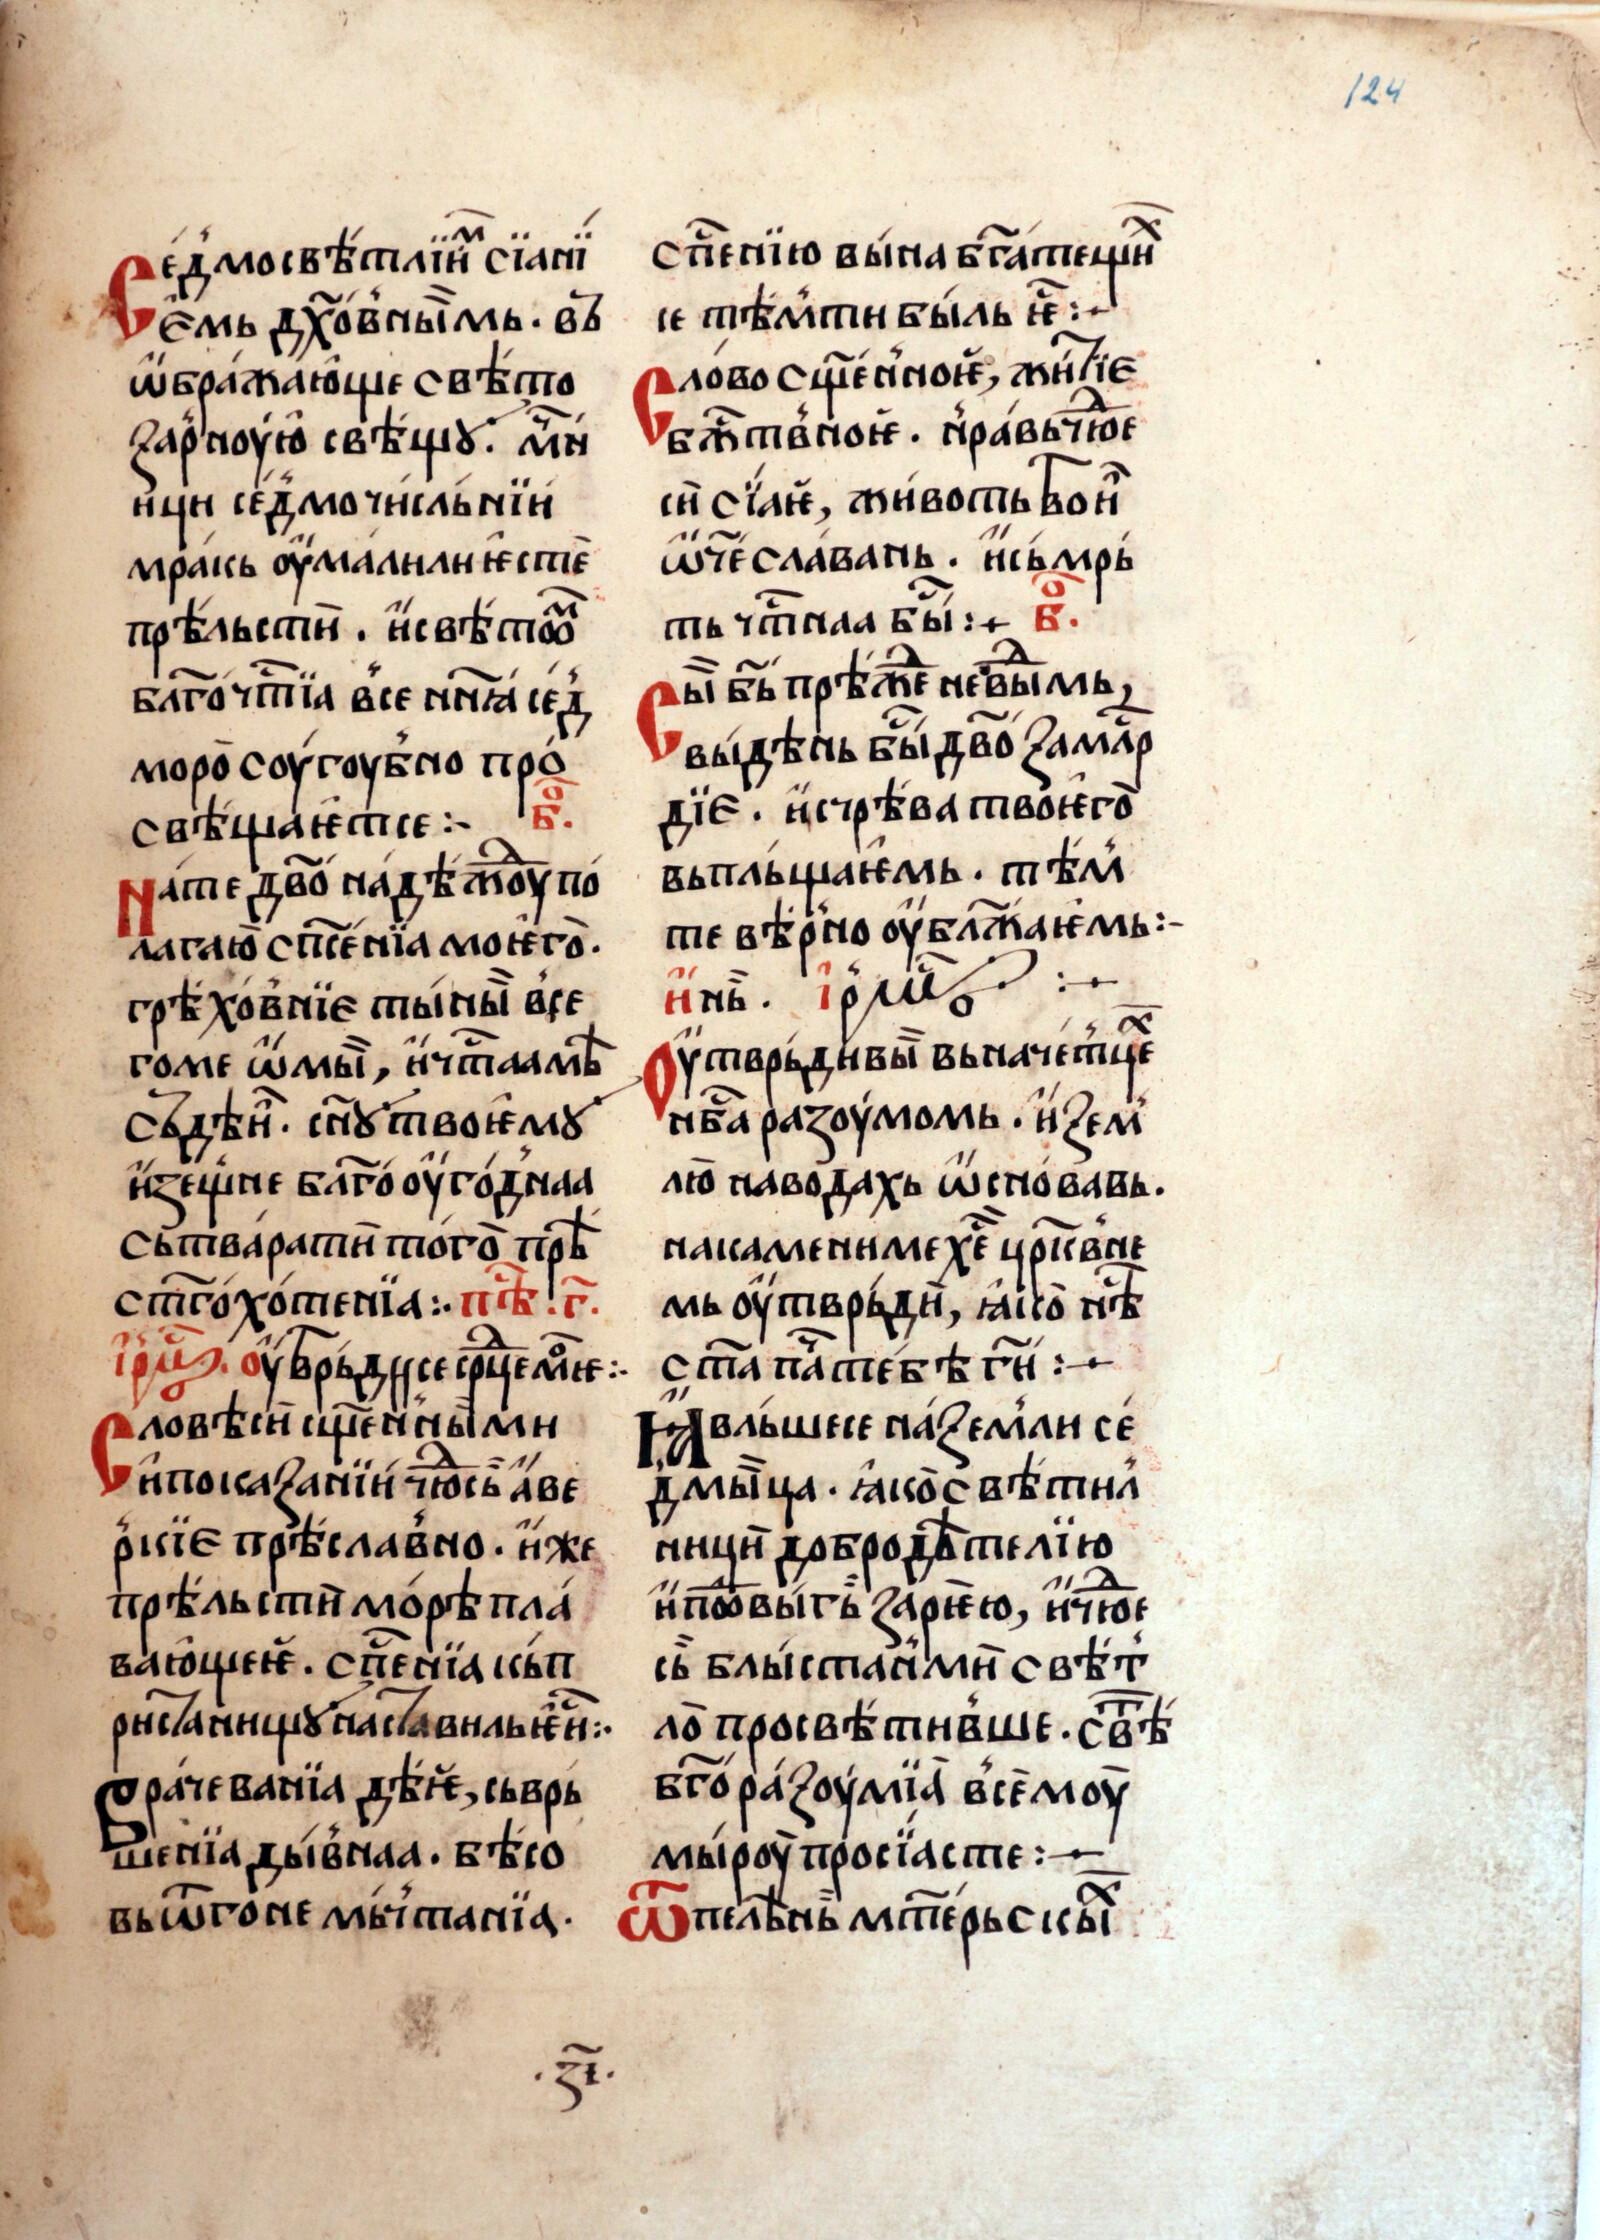 124
Се́дмосвѣ́тлїи́мⷨ сїанї́
ѥ҆мь дх҃о́вны̏мь. въ
ѡ҆бража́ю҆ще свѣ́то
за́рноую̀ свѣ́щꙋ. мⷱ҇и
и́ци се́дмочи́сльнїи́
мра́кь оу҆ма́лили ѥ҆сте̏
прѣ́льсти̏. и҆свѣ́тоⷨ
блг҃оч҇тїа все нн҃ꙗ се́д
моро̏ соу́гоубно про́
свѣ́щаѥ҆тсе :- б҃ⷪ.
На́те дв҃о на́дѣждоу по́
лага́ю̏ сп҃се́нїа моѥ҆го̏.
грѣхо́внїе ты́ны̏ все
го́ме ѿмы̏, и҆ч҇таа мѣ
съдѣи̏. сн҃ꙋ твоѥ҆мꙋ
и҆зещне блг҃о оу҆го́дна́а
сьтва́рати̏ то́го̏ прѣ
ст҃го хо́тенїа :. пⷭ҇ѣ. г҃.
і҆рмⷭ҇. оу҆твьр́дисе ср҃це моⷷѥ :.
Слове́си̏ сщ҃ен́ны̏ми
и҆показа́нїи́ чюⷣсь̏ а҆ве
ркїе прѣ́сла́вно. и҆же
прѣ́льсти̏ мо́рѣ пла́
ваю҆щеѥ҆. сп҃се́нїа кь́п
риста́нищꙋ наста́виль ѥ҆си̏ :.
Враче́ванїа дѣ́ѥ҆, сьврь́
ше́нїа ды́вна́а. бѣ́со
вь ѿго́не мь́чтанїа.
сп҃се́нїю вы́на бг҃а́тещиⷯ
се тѣ́мти бы́ль ѥⷭ҇ :-
Сло́во сщ҃е́нноѥ҆, жи́тїе
бж҃твноѥ҆. нра́вь чюⷣе
си̏ сїа́ѥ҆, живо́ть твои̏
ѿч҃е сла́вань. и҆сьмрь́
ть чⷭ҇тнаа бы̏ :- б҃ⷪ.
Сы̏ б҃ь прѣжⷣе не́вѣдⷣы̏мь,
вы́дѣнь бы̏ дв҃о за млⷭ҇р
дїе. и҆счрѣ́ва твоѥ҆го̏
вьпль́щаѥ҆мь. тѣ́м
те вѣ́рно оу҆бл҃жаѥ҆мь :-
и҆нь̏. і҆рмⷭ҇ѡ :-
Оу҆тврь́дивы̏ вьначе́тцеⷯ
нб҃са ра́зоумомь. и҆зем
лю̏ наво́дахь ѡ҆сно́вавь.
накамени ме хⷭ҇е цр҃квне
мь оу҆тврь́ди̏, ꙗ҆ко̏ нѣⷭ҇
ст҃а па҆ч те́бѣ гⷭ҇и :-
Ꙗ҆вльшесе на́земли се́
дмы̏ца. ꙗ҆ко̏ свѣ́тил
ници̏ добродѣ́телїю
и҆пⷪ҇вы́гь̏ за́риѥ҆ю, и҆чюⷣе
сь̏ блы́стан́ми̏ свѣ́т
ло̏ просвѣ́тивше. свⷮѣ́
бг҃о ра́зоумїа̏ все́моу̏
мы́роу̏ просїа́сте :-
Ѿпеле́нь̏ мт҃е́рьскыⷯ
. з҃і.